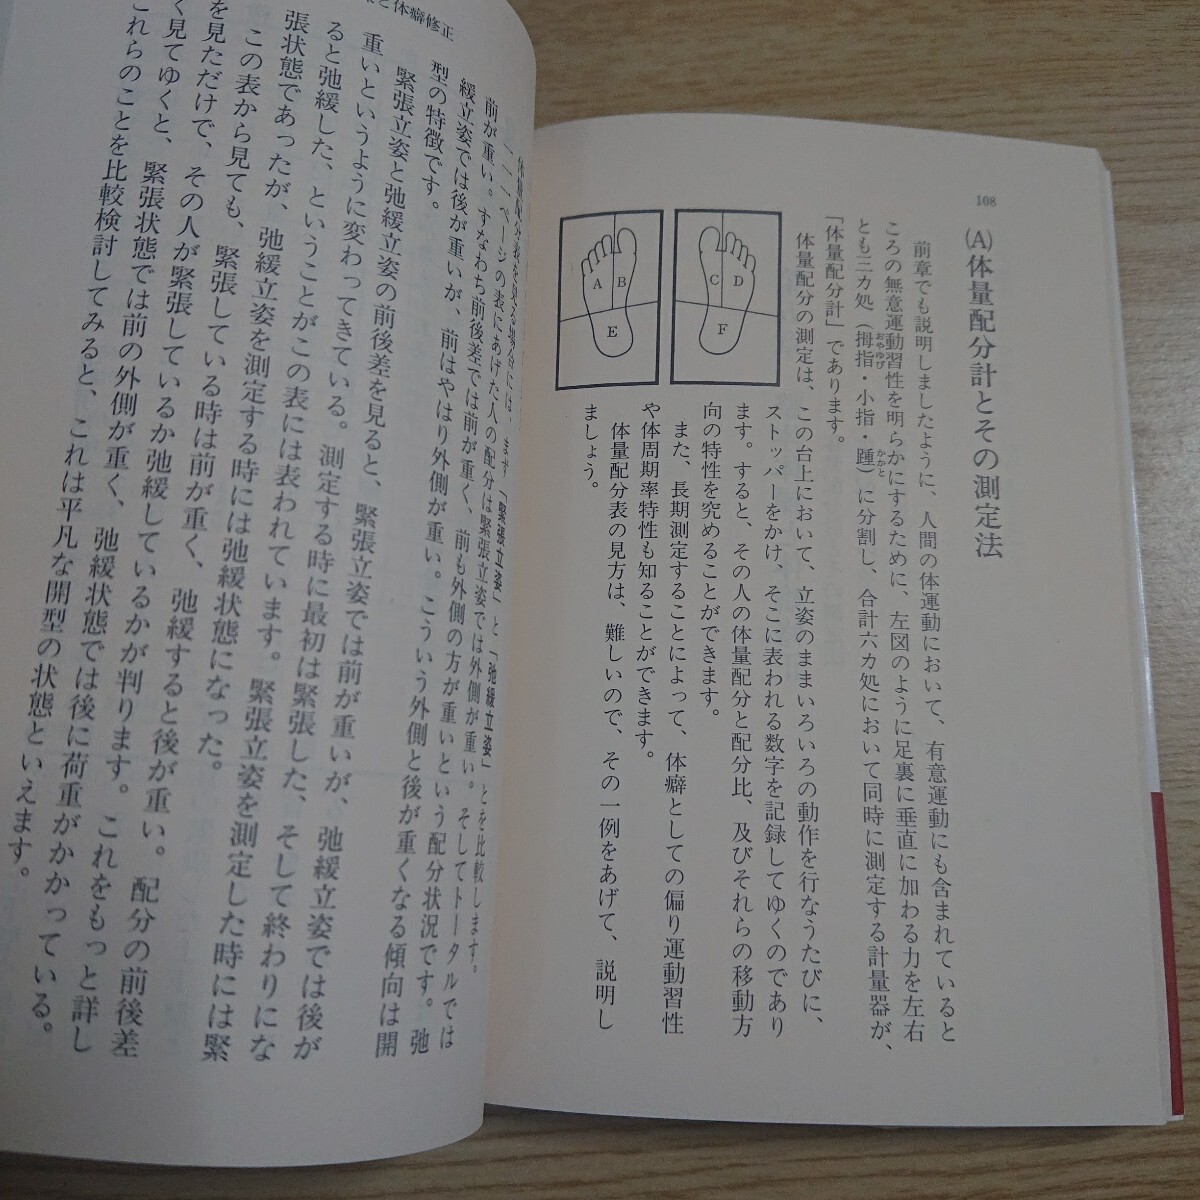 108
(A)体量配分計とその測定法
前章でも説明しましたように、人間の体運動において、有意運動にも含まれていると
ころの無意運動習性を明らかにするために、左図のように足裏に垂直に加わる力を左右
とも三カ処（拇指・小指・踵）に分割し、合計六カ処において同時に測定する計量器が、
おやゆび
かかと
「体量配分計」であります。
体量配分の測定は、この台上において、立姿のままいろいろの動作を行なうたびに、
ストッパーをかけ、そこに表われる数字を記録してゆくのであり
ます。すると、その人の体量配分と配分比、及びそれらの移動方
向の特性を究めることができます。
また、長期測定することによって、体癖としての偏り運動習性
や体周期率特性も知ることができます。
体量配分表の見方は、難しいので、その一例をあげて、説明し
ましょう。
A
B
E
C
D
F
と体癖修正
体量配分表を見る場合には、まず「緊張立姿」と「弛緩立姿」とを比較します。
一一一ページの表にあげた人の配分は緊張立姿では外側が重い。そしてトータルでは
前が重い。すなわち前後差では前が重く、前も外側の方が重いという配分状況です。弛
緩立姿では後が重いが、前はやはり外側が重い。こういう外側と後が重くなる傾向は開
型の特徴です。
緊張立姿と弛緩立姿の前後差を見ると、緊張立姿では前が重いが、弛緩立姿では後が
重いというように変わってきている。測定する時に最初は緊張した、そして終わりにな
ると弛緩した、ということがこの表には表われています。緊張立姿を測定した時には緊
張状態であったが、弛緩立姿を測定する時には弛緩状態になった。
この表から見ても、緊張している時は前が重く、弛緩すると後が重い。配分の前後差
を見ただけで、その人が緊張しているか弛緩しているかが判ります。これをもっと詳し
く見てゆくと、緊張状態では前の外側が重く、弛緩状態では後に荷重がかかっている。
これらのことを比較検討してみると、これは平凡な開型の状態といえます。